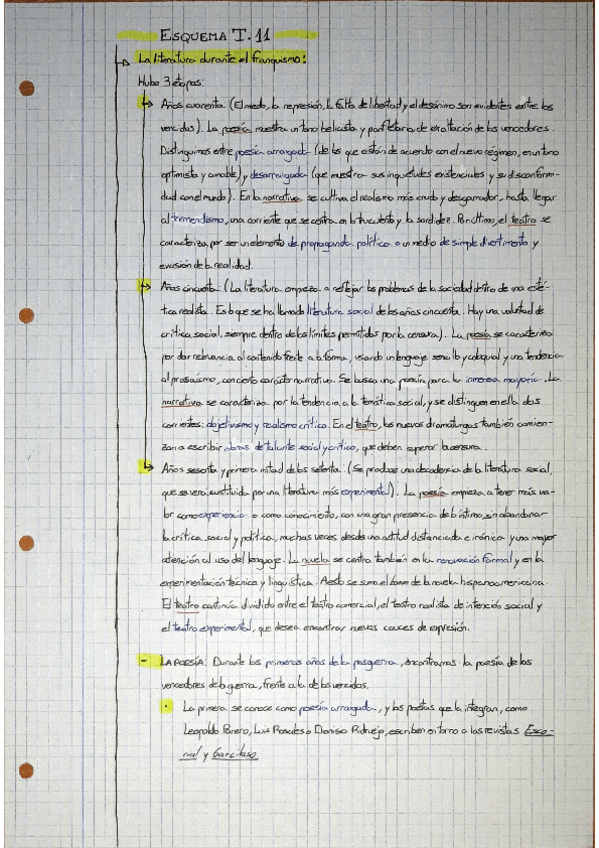 ESQUEMA T. 11
La literatura durante el franquismo:
Hubo 3 etapas:
Años cuarenta (El miedo, la represión, la falta de libertad y el desánimo son evidentes entre los
vencidos). La poesía muestra un tono belicista y panfletario de exaltación de los vencedores.
Distinguimos entre poesía arraigada (de los que están de acuerdo con el nuevo régimen, en un tono
optimista y amable) y desarraigada (que muestra sus inquietudes existenciales y su disconfor-
midad con el mundo). En la narrativa se cultiva el realismo más crudo y desgarrador, hasta llegar
al tremendismo, una corriente que se centra en lo truculento y la sordidez. Por último, el teatro se
caracteriza por ser un elemento de propaganda política o un medio de simple divertimento y
evasión de la realidad.
Años cincuenta (La literatura empieza a reflejar los problemas de la sociedad dentro de una esté-
tica realista. Es lo que se ha llamado literatura social de los años cincuenta. Hay una voluntad de
crítica social, siempre dentro de los límites permitidos por la censura). La poesía se caracteriza
por dar relevancia al contenido frente a la forma, usando un lenguaje sencillo y coloquial y una tendencia
al prosaísmo, con cierto carácter narrativo. Se busca una poesía para la inmensa mayoría. La
narrativa se caracteriza por la tendencia a la temática social, y se distinguen en ella dos
corrientes: objetivismo y realismo crítico. En el teatro, los nuevos dramaturgos también comien-
zan a escribir obras de talante social y crítico, que deben superar la censura.
Años sesenta y primera mitad de los setenta. (Se produce una decadencia de la literatura social,
que se verá sustituida por una literatura más experimental). La poesía empieza a tener más va-
lor como experiencia o como conocimiento, con una gran presencia de lo íntimo, sin abandonar
la crítica social y política, muchas veces desde una actitud distanciada e irónica y una mayor
atención al uso del lenguaje. La novela se centra también en la renovación formal y en la
experimentación técnica y lingüística. A esto se suma el boom de la novela hispanoamericana.
El teatro continúa dividido entre el teatro comercial, el teatro realista de intención social y
el teatro experimental, que desea encontrar nuevos cauces de expresión.
- LA POESÍA: Durante los primeros años de la posguerra, encontramos la poesía de los
vencedores de la guerra, frente a la de los vencidos.
· La primera se conoce como poesía arraigada, y los poetas que la integran, como
Leopoldo Panero, Luis Rosales o Dionisio Ridruejo, escriben en torno a las revistas Esco-
rial y Garcilaso